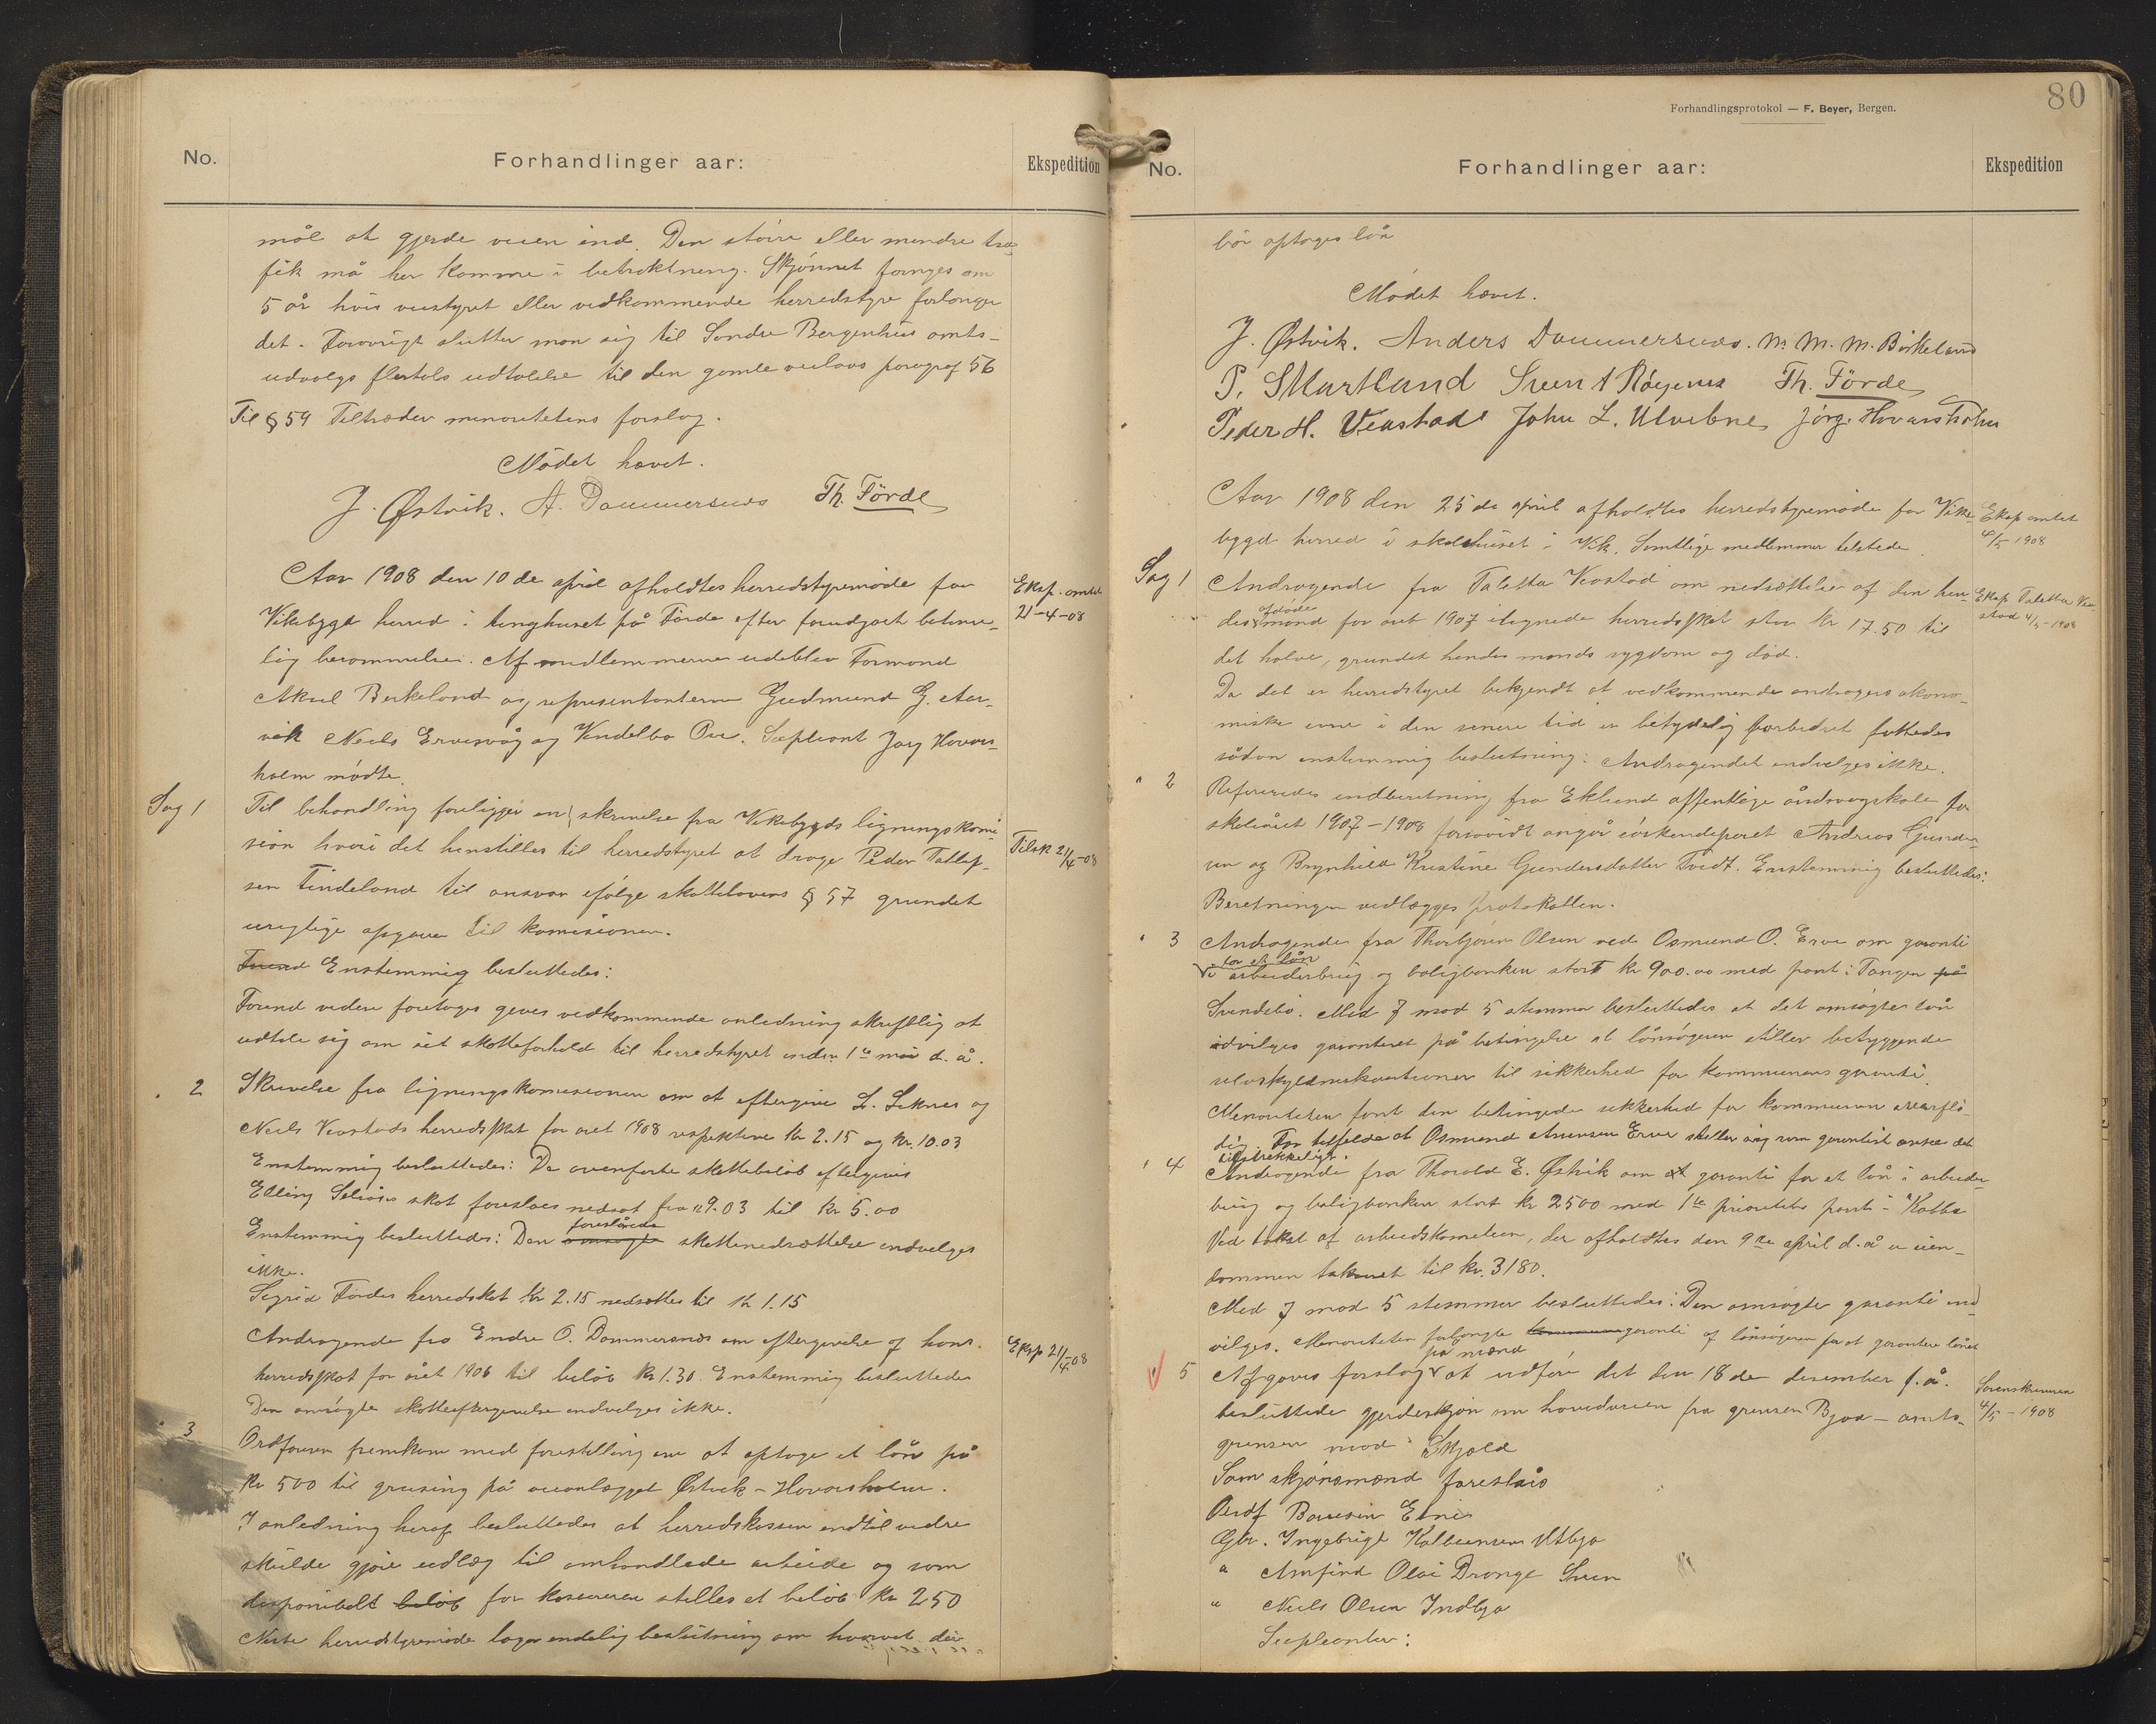 No.
Forhandlinger aar:
Ekspedition
mål at gjerde veien ind. Den större eller mindre tra-
fik må her komme i betraktning. Skjönnet fornyes om
5 år hvis veistyret eller vedkommende herredstyre forlanger
det. Forövrigt slutter man sig til Söndre Bergenhus amts-
udvalgs flertals udtalelse til den gamle veilovs paragraf 56
Til § 59 Tiltræder minoritetens forslag.
Mödet hævet.
J. Østvik. A. Dommersnes Th. Förde
Aar 1908 den 10 de april afholdtes herredstyremöde for
Eksp. amtet
Vikebygd herred i tinghuset på Förde efter forudgået betime-
21-4-08
lig berammelse. Af medlemmerne udeblev Formænd
Aksel Birkeland og repræsentanterne Gudmund G. Aar-
vik Neels Ervesvåg og Vendelbo Øen. Supleant Jørg Hovars-
holm mödte.
Sag 1
Til behandling foreligger en skrivelse fra Vikebygds ligningskomi
sion hvori det henstilles til herredstyret at drage Peder Tollef-
Tilsk 21/4-08
sen Tindeland til ansvar ifølge skattelovens § 57 grundet
urigtige opgaver til komisionen.
Enstemmig besluttedes:
Forend videre foretages gives vedkommende anledning skriftlig at
udtale sig om sit skatteforhold til herredstyret inden 1te mai d. å.
" 2
Skrivelse fra ligningskomisionen om at eftergive L. Leknes og
Neels Veastads herredskat for aret 1908 respektive Kr 2.15 og Kr. 10.03
Enstemmig besluttedes: De ovenförte skattebeløb eftergives
Elling Seliåses skat foreslaes nedsat fra kr 9.03 til Kr 5.00
Enstemmig besluttedes: Den omsögte foreslåede skattenedsættelse indvilges
ikke.
Sigrid Fördes herredskat Kr 2.15 nedsættes til Kr 1.15
Andragende fra Endre O. Dommersnes om eftergivelse af hans
Eksp 21/4-08
herredskat for året 1906 til beløb Kr 1.30. Enstemmig besluttedes
Den omsögte skatteeftergivelse indvilges ikke.
" 3
Ordföreren fremkom med forestilling om at optage et lån på
Kr 500 til grusing på veianlægget Østvik - Hovarsholm.
I anledning heraf besluttedes at herredskassen indtil videre
skulde gjöre udlæg til omhandlede arbeide og som
disponibelt beløb for kassereren stilles et beløb Kr 250
Næste herredstyremöde tager endelig beslutning om hvorvidt der
80
Forhandlingsprotokol — F. Beyer, Bergen.
No.
Forhandlinger aar:
Ekspedition
bör optages lån
Mödet hævet.
J. Østvik. Anders Dommersnes. M. M. Birkeland
P. S Martland Sven A Röyrnes Th. Förde
Peder H. Veastad John L. Ulvebne Jörg. Hovarsholm
Aar 1908 den 25 de april afholdtes herredstyremöde for Vike-
Eksp amtet
bygd herred i skolehuset i Vik. Samtlige medlemmer tilstede.
4/5 1908
Sag 1
Andragende fra Taletta Veastad om nedsættelse af den hen-
Eksp Taletta Vea-
des afdöde mand for aret 1907 ilignede herredskat stor kr 17.50 til
stad 4/5-1908
det halve, grundet hendes mands sygdom og död.
Da det er herredstyret bekjendt at vedkommende andragers økono-
miske evne i den senere tid er betydelig forbedret fattedes
sådan enstemmig beslutning: Andragendet indvelges ikke.
" 2
Refereredes indberetning fra Eklund offentlige åndsvagskole for
skoleåret 1907-1908 forsåvidt angår söskendeparet Andreas Gunder-
sen og Brynhild Kristine Gundersdatter Tvedt. Enstemmig besluttedes:
Beretningen vedlægges protokollen.
" 3
Andragende fra Thorbjörn Olsen ved Osmund O. Erve om garanti
for et lån
i arbeiderbrug og boligbanken stort kr 900.00 med pant i Tangen på
Svendsbö. Med 7 mod 5 stemmer besluttedes at det omsögte lån
idvilges garanteret på betingelse at lånsögeren stiller betryggende
selvskyldnerkautioner til sikkerhed for kommunens garanti.
Menoriteten fant den betingede sikkerhed for kommunen overflö-
dig. For tilfælde at Osmund Osmunsen Erve stiller sig som garantist anses det
tilstrækkeligt.
" 4
Andragende fra Thorald E. Østvik om garanti for et lån i arbeider-
brug og boligbanken stort kr 2500 med 1te prioritets pant i Kobbe
Ved takst af arbeidskomiteen, der afholdtes den 9de april d. å er eien-
dommen takseret til kr. 3180.
Med 7 mod 5 stemmer besluttedes: Den omsögte garanti ind
vilges. Menoriteten forlangte garanti af lånsögeren for at garantere lånet
" 5
Afgaves forslag på mænd at udføre det den 18 de desember f. å.
Sorenskriveren
besluttede gjerdeskjön om hovedveien fra grensen Bjoa - amts-
4/5-1908
grensen mod Skjold
Som skjönsmænd foreslåes
Ordf Børresen Etne
Gbr. Ingebrigt Kolbeinsen Utbjo
" Arnfind Olai Drange Sveen
" Neels Olsen Indbjo
Supleanter: